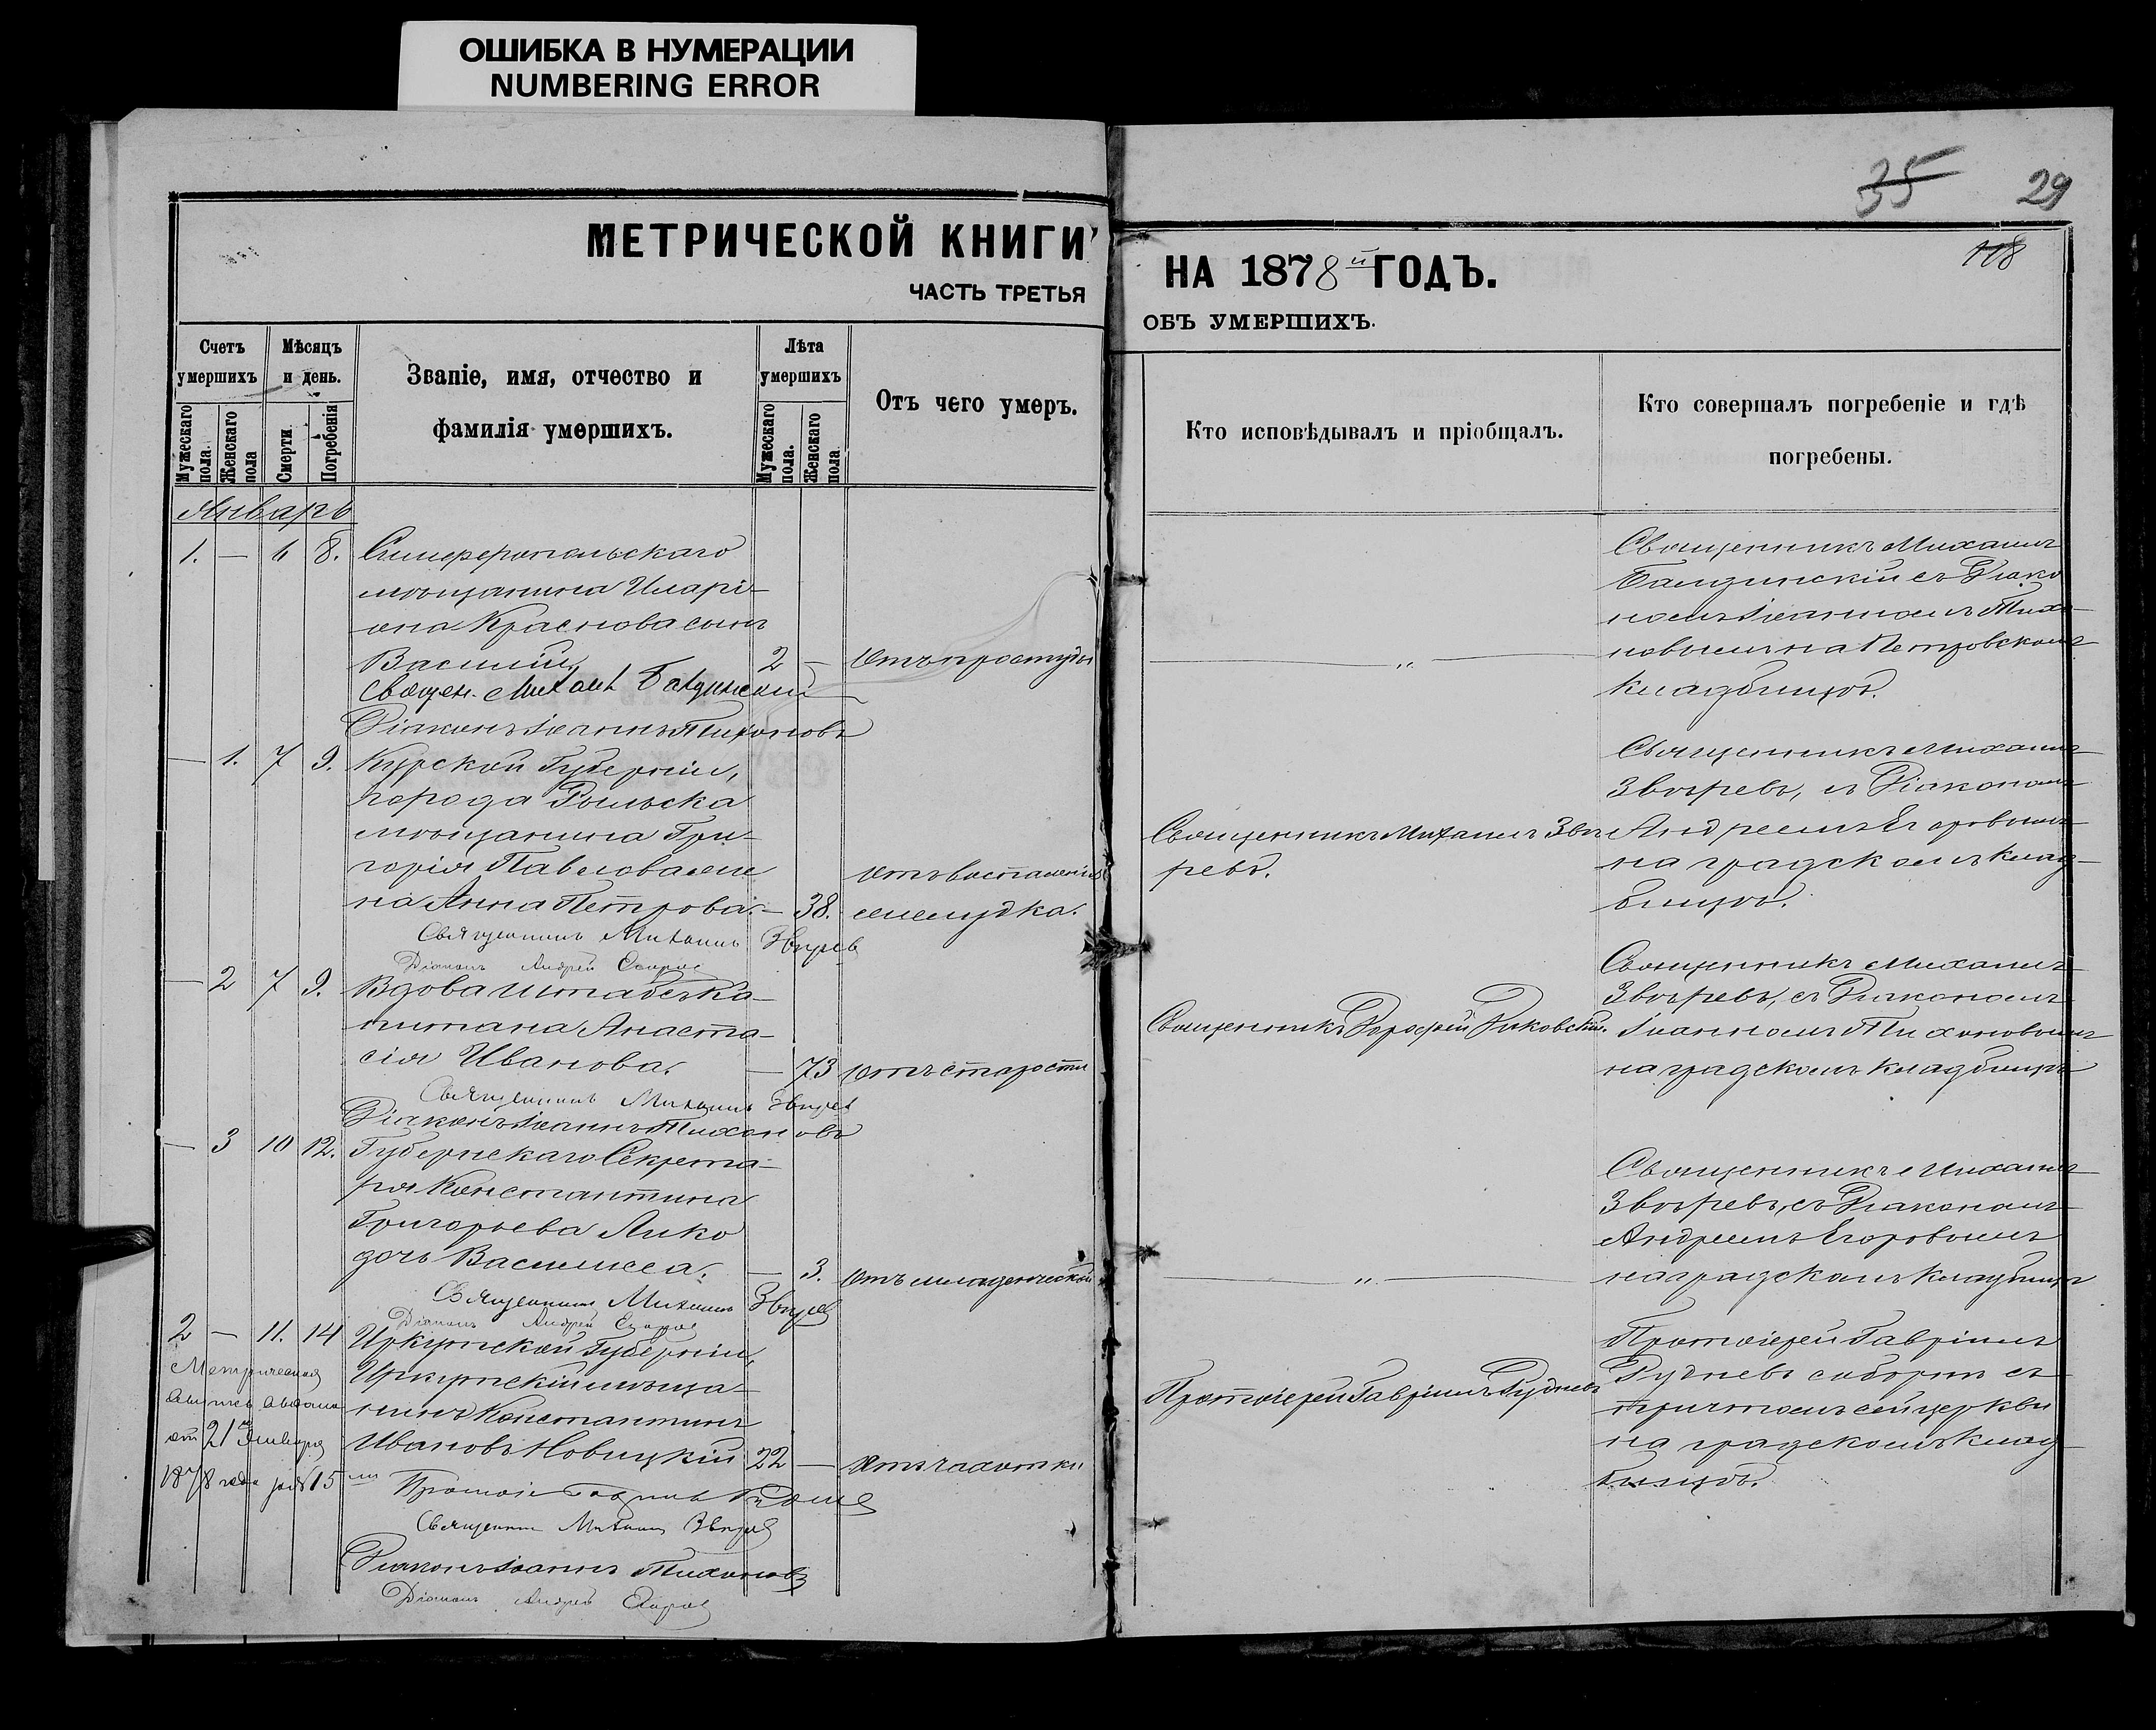 ОШИБКА В НУМЕРАЦИИ
NUMBERING ERROR
35 29
118
МЕТРИЧЕСКОЙ КНИГИ
ЧАСТЬ ТРЕТЬЯ
Счетъ умершихъ
Мужескаго пола.
Женскаго пола
Мѣсяцъ и день.
Смерти
Погребенія
Званіе, имя, отчество и
фамилія умершихъ.
Лѣта умершихъ
Мужескаго пола.
Женскаго пола.
Отъ чего умеръ.
Январь
1. — 6 8. Симферопольскаго
мѣщанина Иларі-
она Краснова сынъ
Василій, 2 — отъ простуды
Священ. Михаил Балдинский
Діаконъ Іоаннъ Тихоновъ
— 1. 7 9. Курской Губерніи,
города Рыльска
мѣщанина Гри-
горія Павлова же-
на Анна Петрова. — 38. отъ воспаленія
желудка.
Священникъ Михаилъ Звѣрев
Діаконъ Андрей Егоров
— 2 7 9. Вдова Штабсъ-ка-
питана Анаста-
сія Иванова. — 73 отъ старости
Священникъ Михаилъ Звѣрев
Діаконъ Іоаннъ Тихоновъ
— 3 10 12. Губернскаго Секрета-
ря Константина
Григорьева Лико
дочь Василисса. — 3. отъ младенческой
Священникъ Михаилъ Звѣрев
Діаконъ Андрей Егоров
2 — 11. 14 Иркутской Губерніи,
Иркутскій мѣща-
нинъ Константинъ
Ивановъ Новицкій 22 — отъ чахотки
от 21 Января
1878 года за № 15
Священникъ Михаилъ Звѣрев
Діаконъ Іоаннъ Тихоновъ
Діаконъ Андрей Егоров
НА 1878й ГОДЪ.
ОБЪ УМЕРШИХЪ.
Кто исповѣдывалъ и пріобщалъ.
Кто совершалъ погребеніе и гдѣ
погребены.
— „ —
Священникъ Михаилъ
Балдинскій съ Діако
номъ Іоанномъ Тихо-
новымъ на Петровскомъ
кладбищѣ.
Священникъ Михаилъ Звѣ-
ревъ.
Священникъ Михаилъ
Звѣревъ, съ Діакономъ
Андреемъ Егоровымъ
на градскомъ клад-
бищѣ.
Священникъ Михаилъ
Звѣревъ, съ Діакономъ
Іоанномъ Тихоновымъ
на градскомъ кладбищѣ
— „ —
Священникъ Михаилъ
Звѣревъ, съ Діакономъ
Андреемъ Егоровымъ
на градскомъ кладбищѣ
Протоіерей Гавріилъ Рудневъ
Протоіерей Гавріилъ
Рудневъ соборнѣ съ
причтомъ сей церкви
на градскомъ клад-
бищѣ.